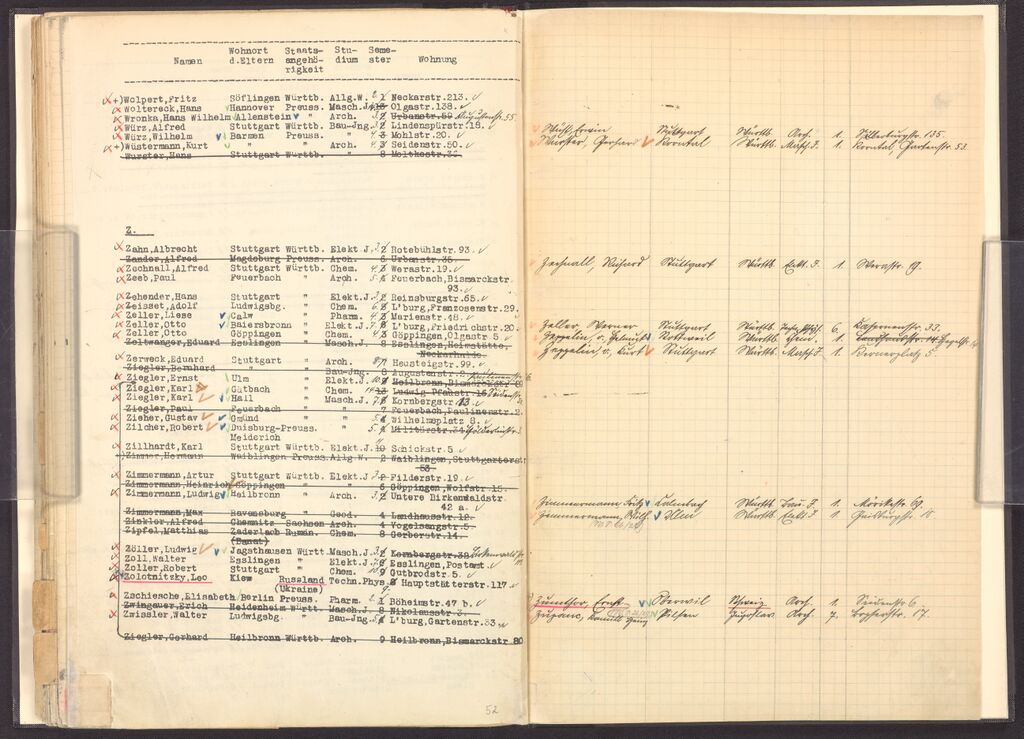 Namen Wohnort d.Eltern Staats-angehö-rigkeit Stu-dium Seme-ster Wohnung
+)Wolpert,Fritz Söflingen Württb. Allg.W. Neckarstr.213.
Woltereck,Hans Hannover Preuss. Masch.J. Olgastr.138.
Wronka,Hans Wilhelm Allenstein " Arch. Urbanstr.59 Augustenstr. 55.
Würz,Alfred Stuttgart Württb. Bau-Jng. Lindenspürstr.18.
Würz,Wilhelm Barmen Preuss. " Mohlstr.20.
+)Wüstermann,Kurt " " Arch. Seidenstr.50.
Wurster,Hans Stuttgart Württb. " 8 Moltkestr.30.
Z.
Zahn,Albrecht Stuttgart Württb. Elekt.J. Rotebühlstr.93.
Zander,Alfred Magdeburg Preuss. Arch. 6 Urbanstr.35.
Zschnall,Alfred Stuttgart Württb. Chem. Werastr.19.
Zeeb,Paul Feuerbach " Arch. Feuerbach,Bismarckstr.
93.
Zehender,Hans Stuttgart " Elekt.J. Reinsburgstr.65.
Zeisset,Adolf Ludwigsbg. " Chem. L'burg,Franzosenstr.29.
Zeller,Liese Calw " Pharm. Marienstr.48.
Zeller,Otto Baiersbronn " Elekt.J. L'burg,Friedrichstr.20.
Zeller,Otto Göppingen " Chem. Göppingen,Olgastr.5
Zeltwanger,Eduard Esslingen " Masch.J. 8 Esslingen,Heimstätte,
Neckarhalde.
Zerweck,Eduard Stuttgart " Arch. Heusteigstr.99.
Ziegler,Bernhard " " Bau-Jng. 8 Augustenstr.2
Ziegler,Ernst Ulm " Elekt.J. Heilbronn,Bismarckstr.80
Ziegler,Karl Gütbach " Chem. Ludwig-Pfaustr.15
Ziegler,Karl Hall " Masch.J. Kornbergstr.
Ziegler,Paul Feuerbach " " 7 Feuerbach,Paulinenstr.2
Zieher,Gustav Gmünd " " Wilhelmsplatz 8.
Zilcher,Robert Duisburg-Preuss. " Militärstr.
Meiderich
Zillhardt,Karl Stuttgart Württb. Elekt.J. Schickstr.5
+)Zimmer,Hermann Waiblingen Preuss. Allg.W. 2 Waiblingen,Stuttgarterstr
53.
Zimmermann,Artur Stuttgart Württb. Elekt.J. Filderstr.19
Zimmermann,Heinrich Göppingen " " 6 Göppingen,Wolfstr.15.
Zimmermann,Ludwig Heilbronn " Arch. Untere Birkenwaldstr.
42 a.
Zimmermann,Max Ravensburg " Geod. 4 Landhausstr.12.
Zinkler,Alfred Chemnitz Sachsen Arch. 4 Vogelsangstr.5
Zipfel,Matthias Zaderlach Rumän. Chem. 8 Gerberstr.14.
(Banat)
Zöller,Ludwig Jagsthausen Württ. Masch.J. Kornbergstr.38
Zoll,Walter Esslingen " Elekt.J. Esslingen,Postamt
Zoller,Robert Stuttgart " Chem. Gutbrodstr.5.
Zolotnitzky,Leo Kiew Russland Techn.Phys. 8 Hauptstätterstr.117.
(Ukraine)
Zschiesche,Elisabeth Berlin Preuss. Pharm. Böheimstr.47 b.
Zwingauer,Erich Heidenheim Württ. Masch.J. 8 Nikolausstr.3
Zwissler,Walter Ludwigsbg. " Bau-Jng. L'burg,Gartenstr.33
Ziegler,Gerhard Heilbronn Württb. Arch. 9 Heilbronn,Bismarckstr.80
52
Wüst, Erwin Stuttgart Württb. Arch. 1. 135
Wurster, Gerhard Korntal Württb. Masch.J. 1. Korntal, Gartenstr. 53.
Zschnall, Richard Stuttgart Württb. Elekt.J. 1. Werastr. 19.
Zeller, Werner Stuttgart Württb. 6. Kasernenstr. 33.
Zeppelin, v. Helmut Rottweil Württb. Chem. 1. Landhausstr. 14
Zeppelin, v. Kurt Stuttgart Württb. Masch.J. 1. Kernerplatz 5.
Zimmermann, Fritz Württb. Bau.J. 1. Mörikestr. 69.
Zimmermann, Ulm Württb. Elekt.J. 1.
Zumthor, Ernst Oberwil Schweiz Arch. 1. Seidenstr. 6.
Zupanc, Pilsen Jugoslav. Arch. 7. 17.